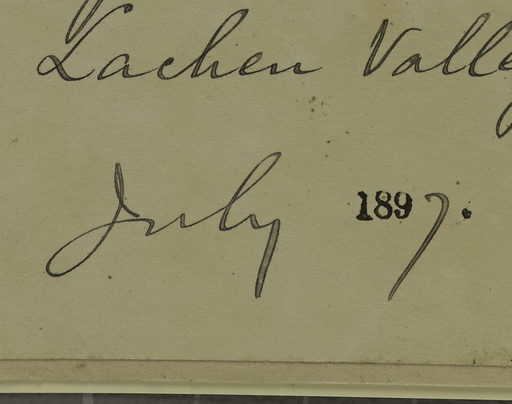 Lachen Valley
July 1897.